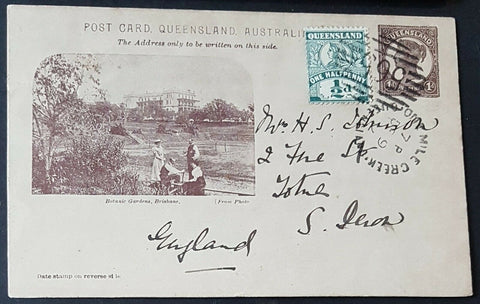 POST CARD, QUEENSLAND, AUSTRALIA
The Address only to be written on this side.
QUEENSLAND
ONE HALFPENNY
½d
QUEENSLAND
1d
MILE CREEK
Mrs H. S. Johnson
2 The
Totnes
S. Devon
England
Botanic Gardens, Brisbane.
[From Photo
Date stamp on reverse side.